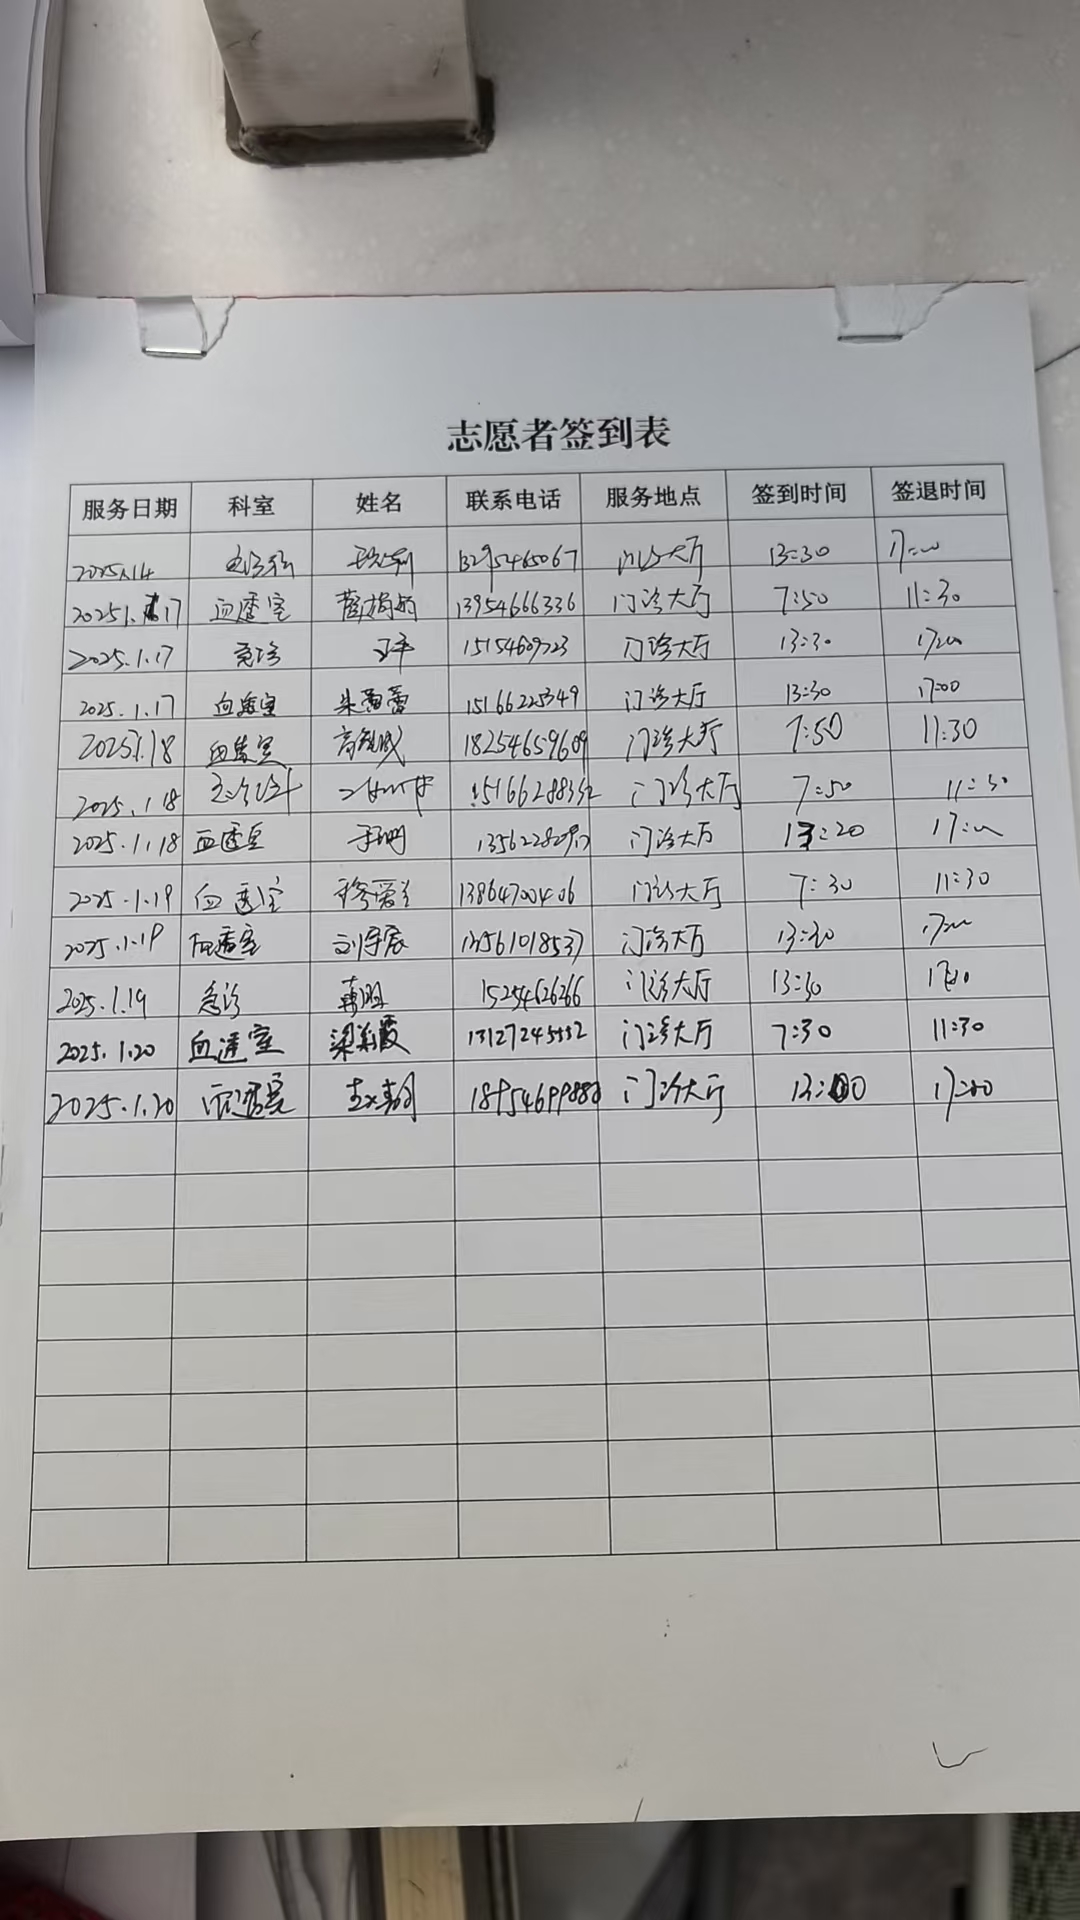 志愿者签到表
服务日期 科室 姓名 联系电话 服务地点 签到时间 签退时间
2025.1.14 13295465067 门诊大厅 13:30 17:00
2025.1.17 血透室 13954666336 门诊大厅 7:50 11:30
2025.1.17 15154609723 门诊大厅 13:30 17:00
2025.1.17 血透室 朱蕾蕾 15166225349 门诊大厅 13:30 17:00
2025.1.18 血透室 18254659609 门诊大厅 7:50 11:30
2025.1.18 15166288332 门诊大厅 7:50 11:30
2025.1.18 血透室 于珊 门诊大厅 13:20 17:00
2025.1.19 血透室 13864700406 门诊大厅 7:30 11:30
2025.1.19 血透室 刘宇辰 13561018537 门诊大厅 13:30 17:00
2025.1.19 急诊 15254626266 门诊大厅 13:30
2025.1.20 血透室 梁彩霞 13127245552 门诊大厅 7:30 11:30
2025.1.20 血透室 18954699888 门诊大厅 13:00 17:00